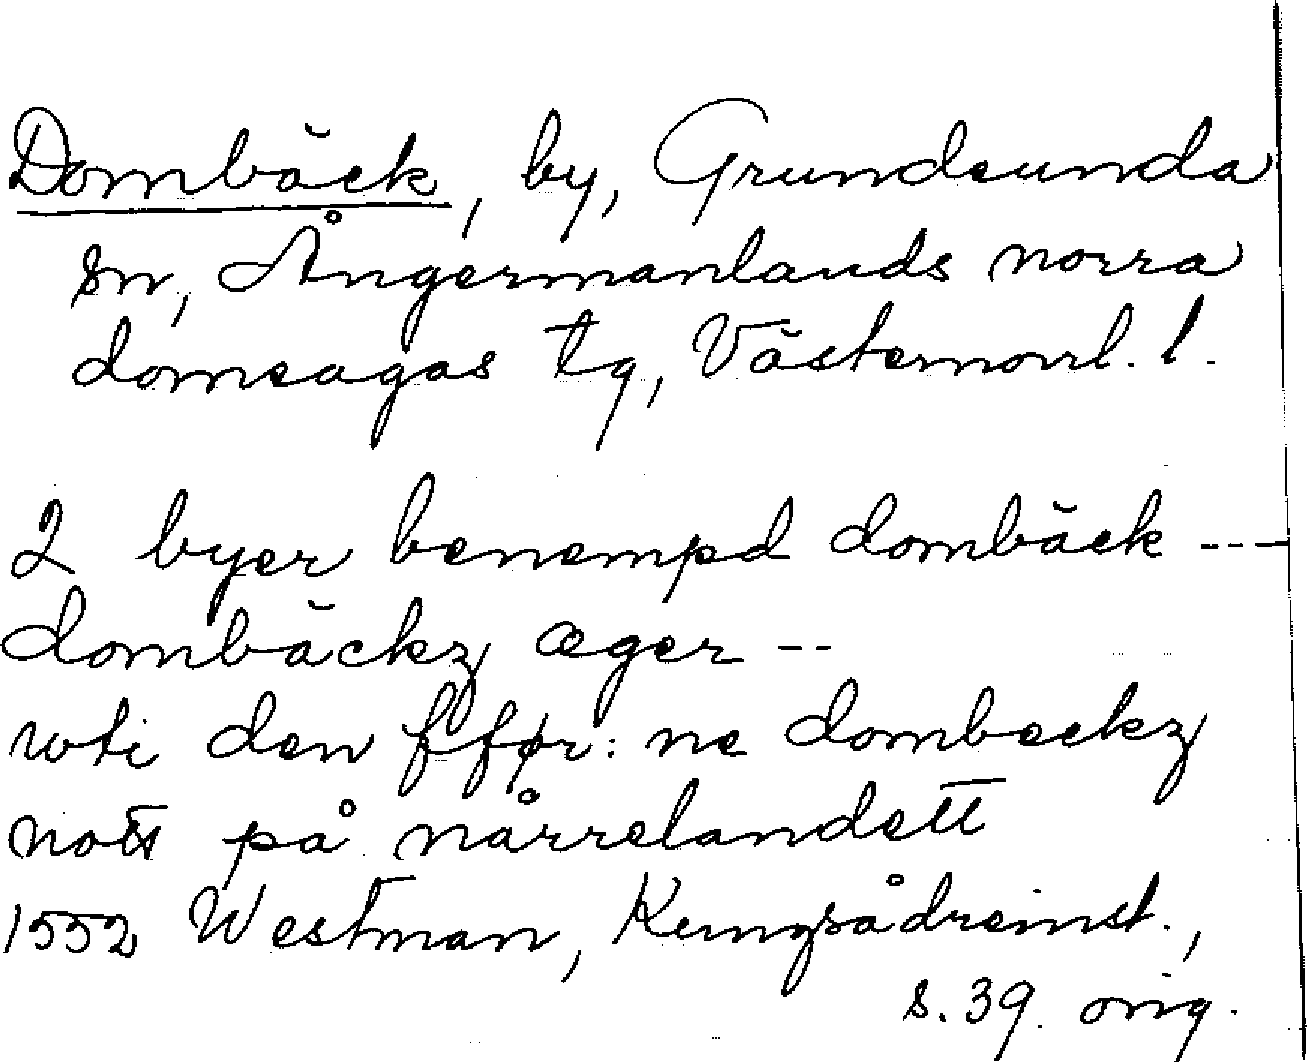 Dombäck, by, Grundsunda
sn, Ångermanlands norra
domsagas tg, Västernorrl. l.
2 byer benempd dombäck ---
dombäckz æger --
wti den ffør: ne dombeckz
nott på nårrelandett
1552 Westman, Kungsådreinst.,
s. 39. orig.